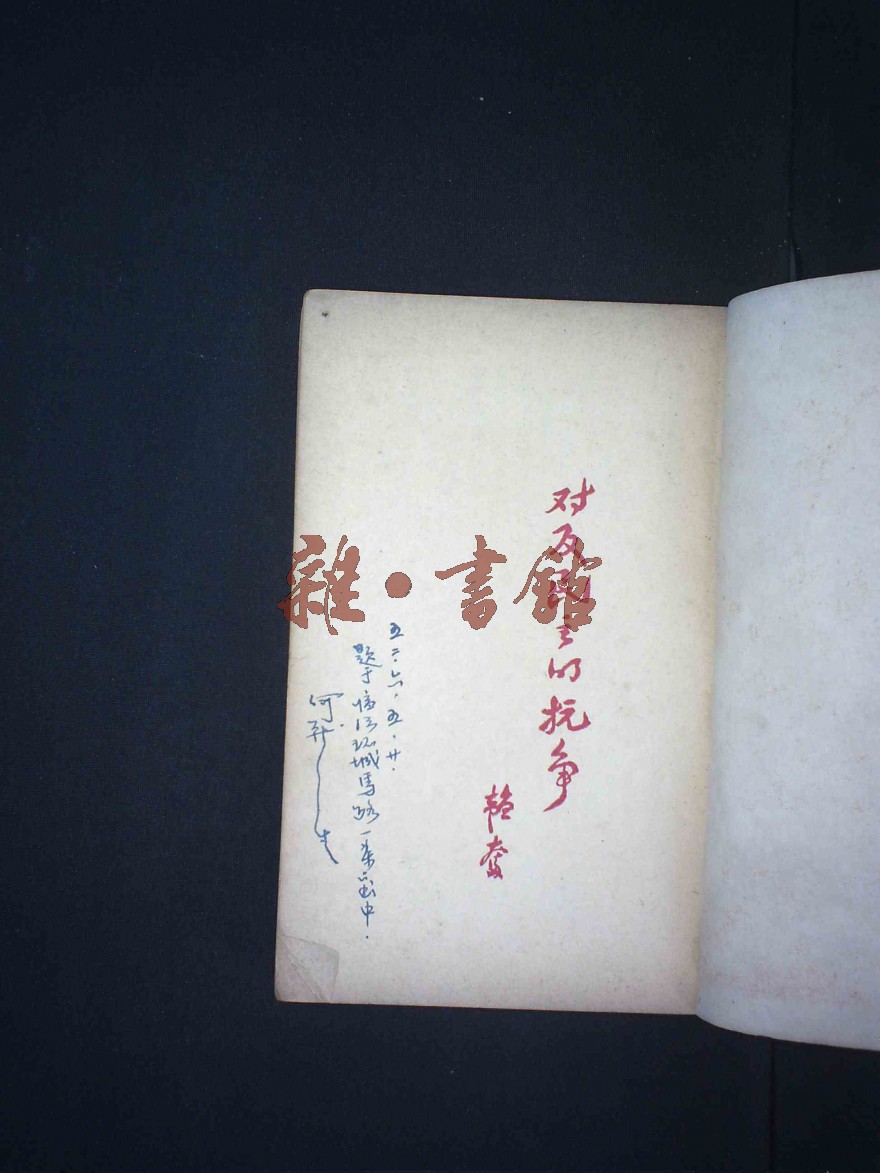 对反民主的抗争
韬奋
五二·六·五·廿·
题于 环城马路一 中·
何
雜·書館